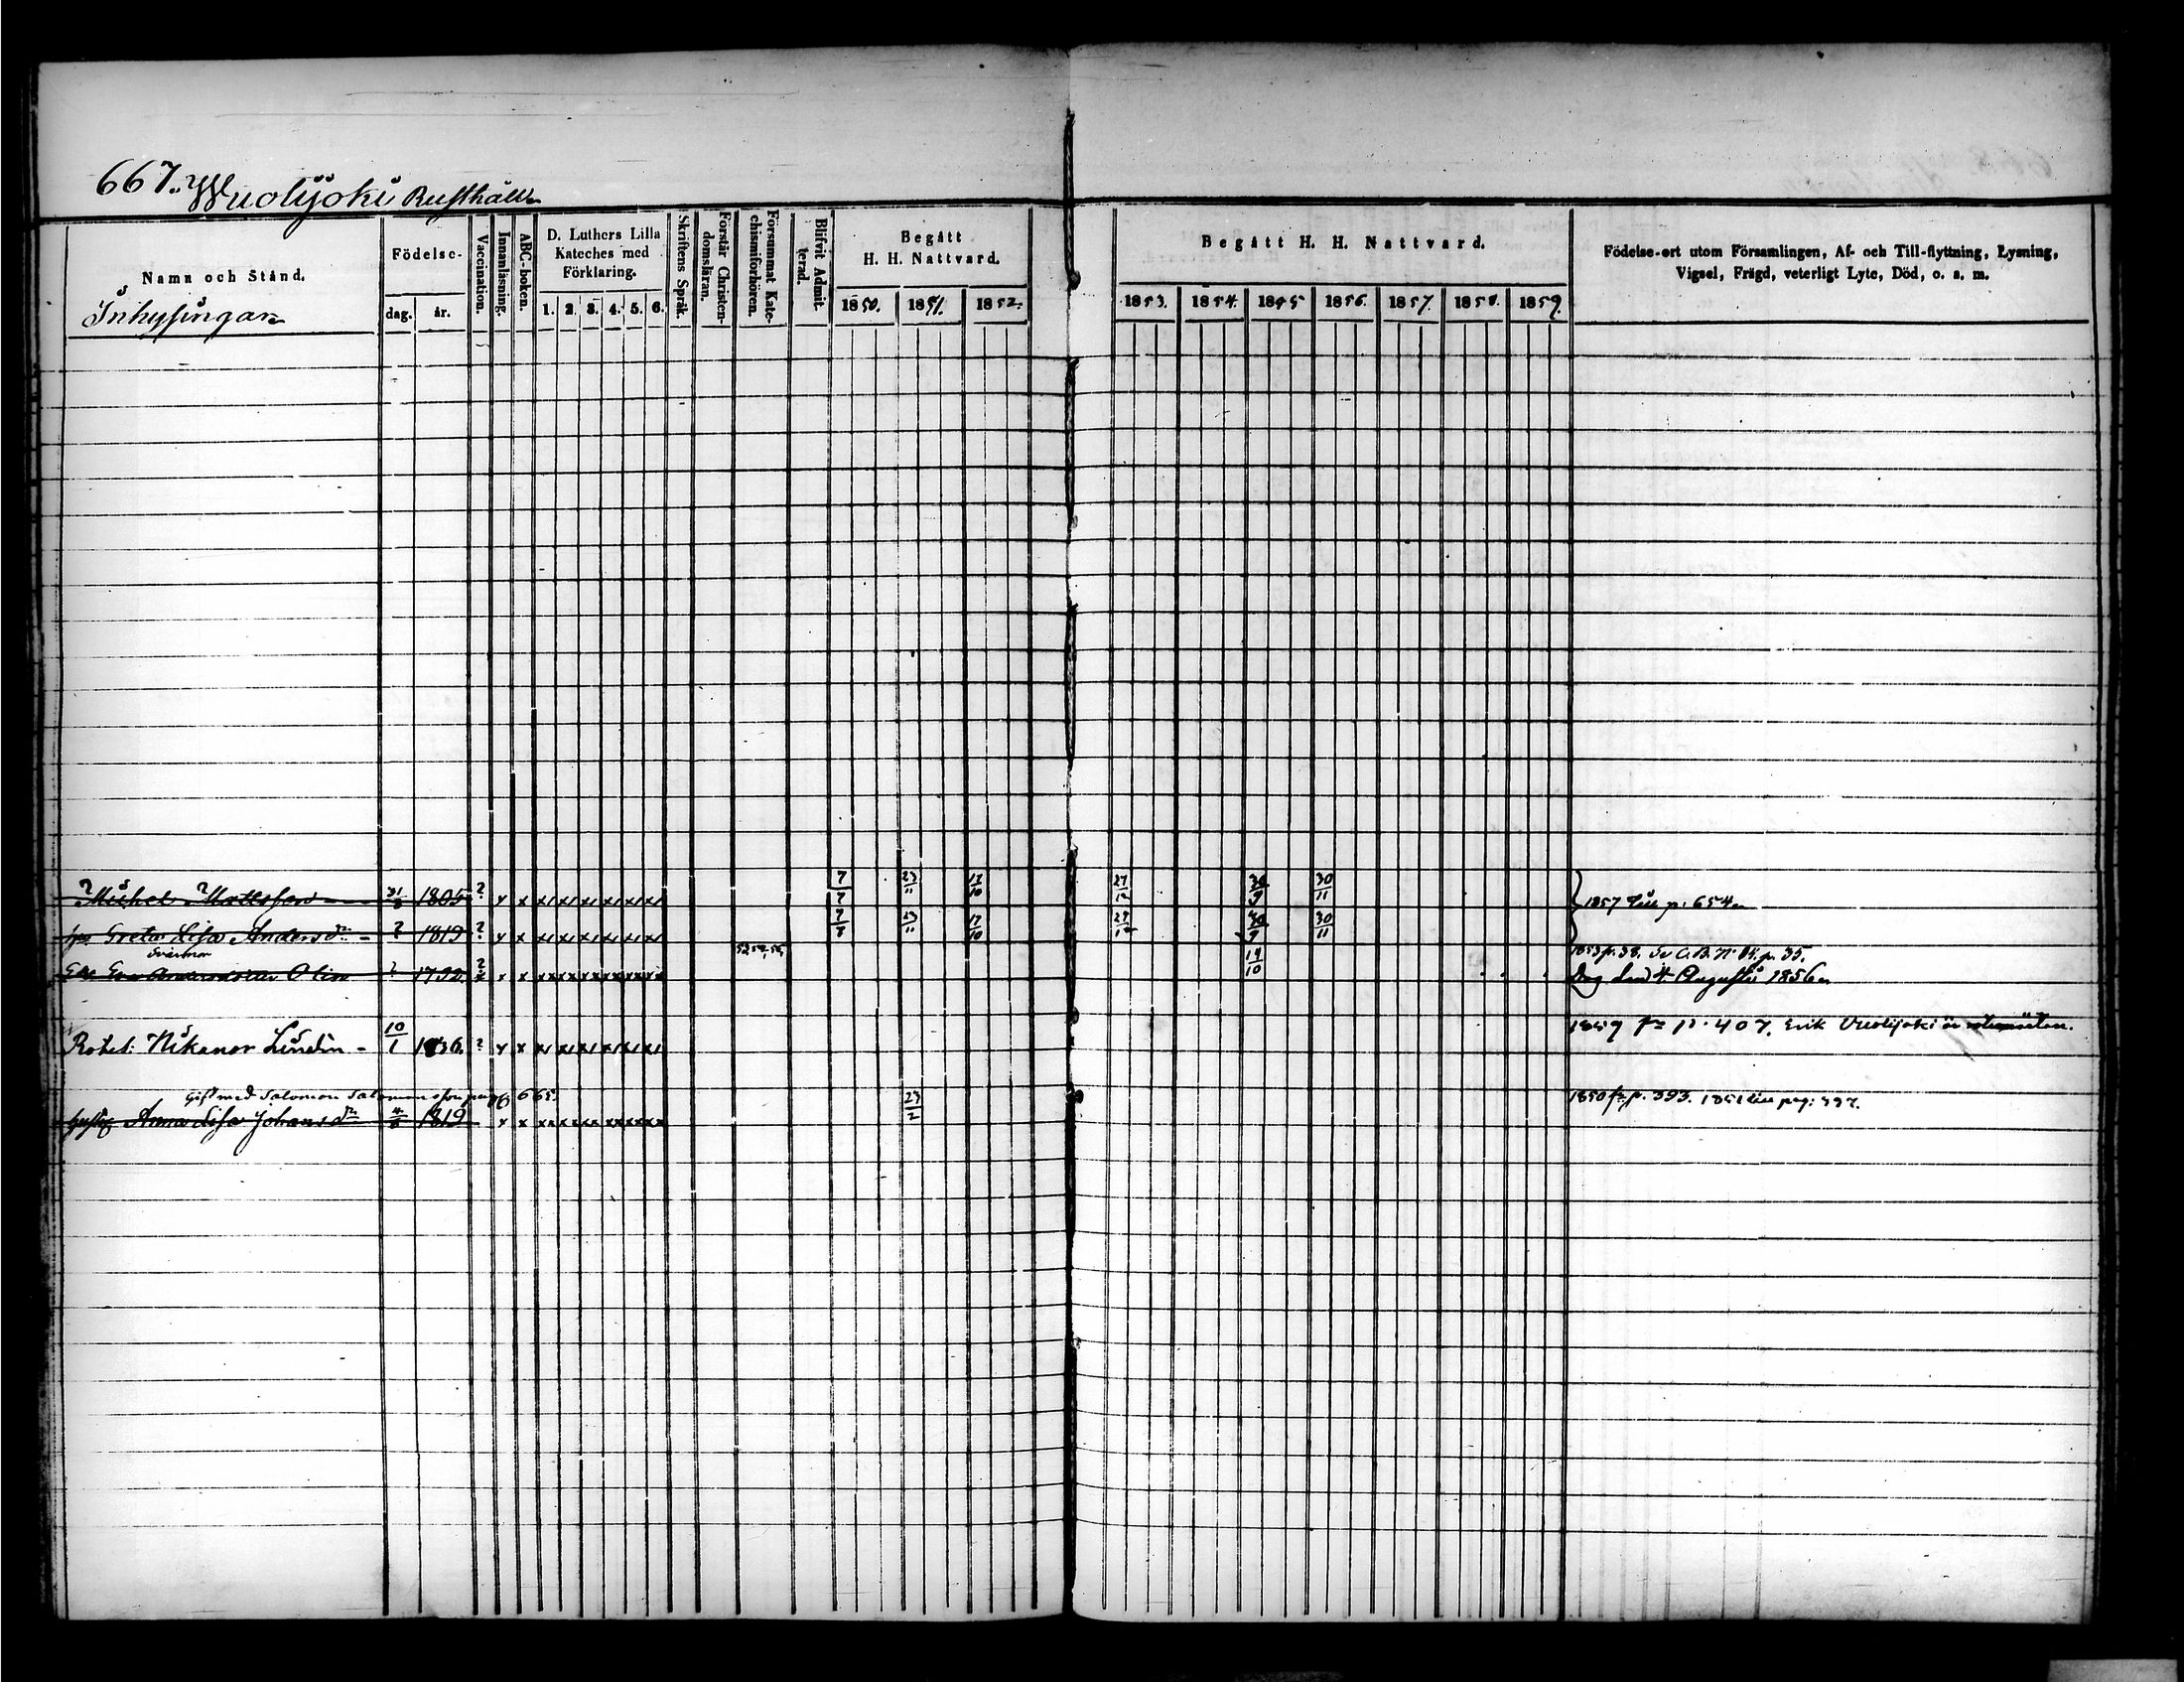 667. Wuolijoki Rusthåll
Namn och Stånd.
Inhysingar
Födelse-
dag. år.
Vaccination.
Innanläsning.
ABC-boken.
D. Luthers Lilla
Kateches med
Förklaring.
1. 2. 3. 4. 5. 6.
Skriftens Språk.
Förstår Christen-
domsläran.
Försummat Kate-
chismiförhören.
Blifvit Admit-
terad.
Begått
H. H. Nattvard.
1850. 1851. 1852.
Begått H. H. Nattvard.
1853. 1854. 1855 1856. 1857. 1858. 1859.
Födelse-ort utom Församlingen, Af- och Till-flyttning, Lysning,
Vigsel, Frägd, veterligt Lyte, Död, o. s. m.
Michel Mattsson 31/3 1805 ? x x x x x x x x 7/7 23/11 17/10 27/12 30/9 30/11 1857 till p. 654
Greta Lisa Andersdr ? 1819 ? x x x x x x x x 7/7 23/11 17/10 27/12 30/9 30/11
Svärmor 14/10 1853 p. 38. Se C.B. No 14. p. 35.
Eva Andersdotter Olin ? 1792 ? x x Dog den 4 Augusti 1856
1859 fr p. 407. Erik Vuolijoki är
Rotel: Nikanor Lindin - 10/1 1836. ? x x
Gift med Salomon Salomonsson pag 665. 23/2 1850 fr p. 393. 1851 till pag: 337.
Anna Lisa Johansdr 4/8 1819 x x